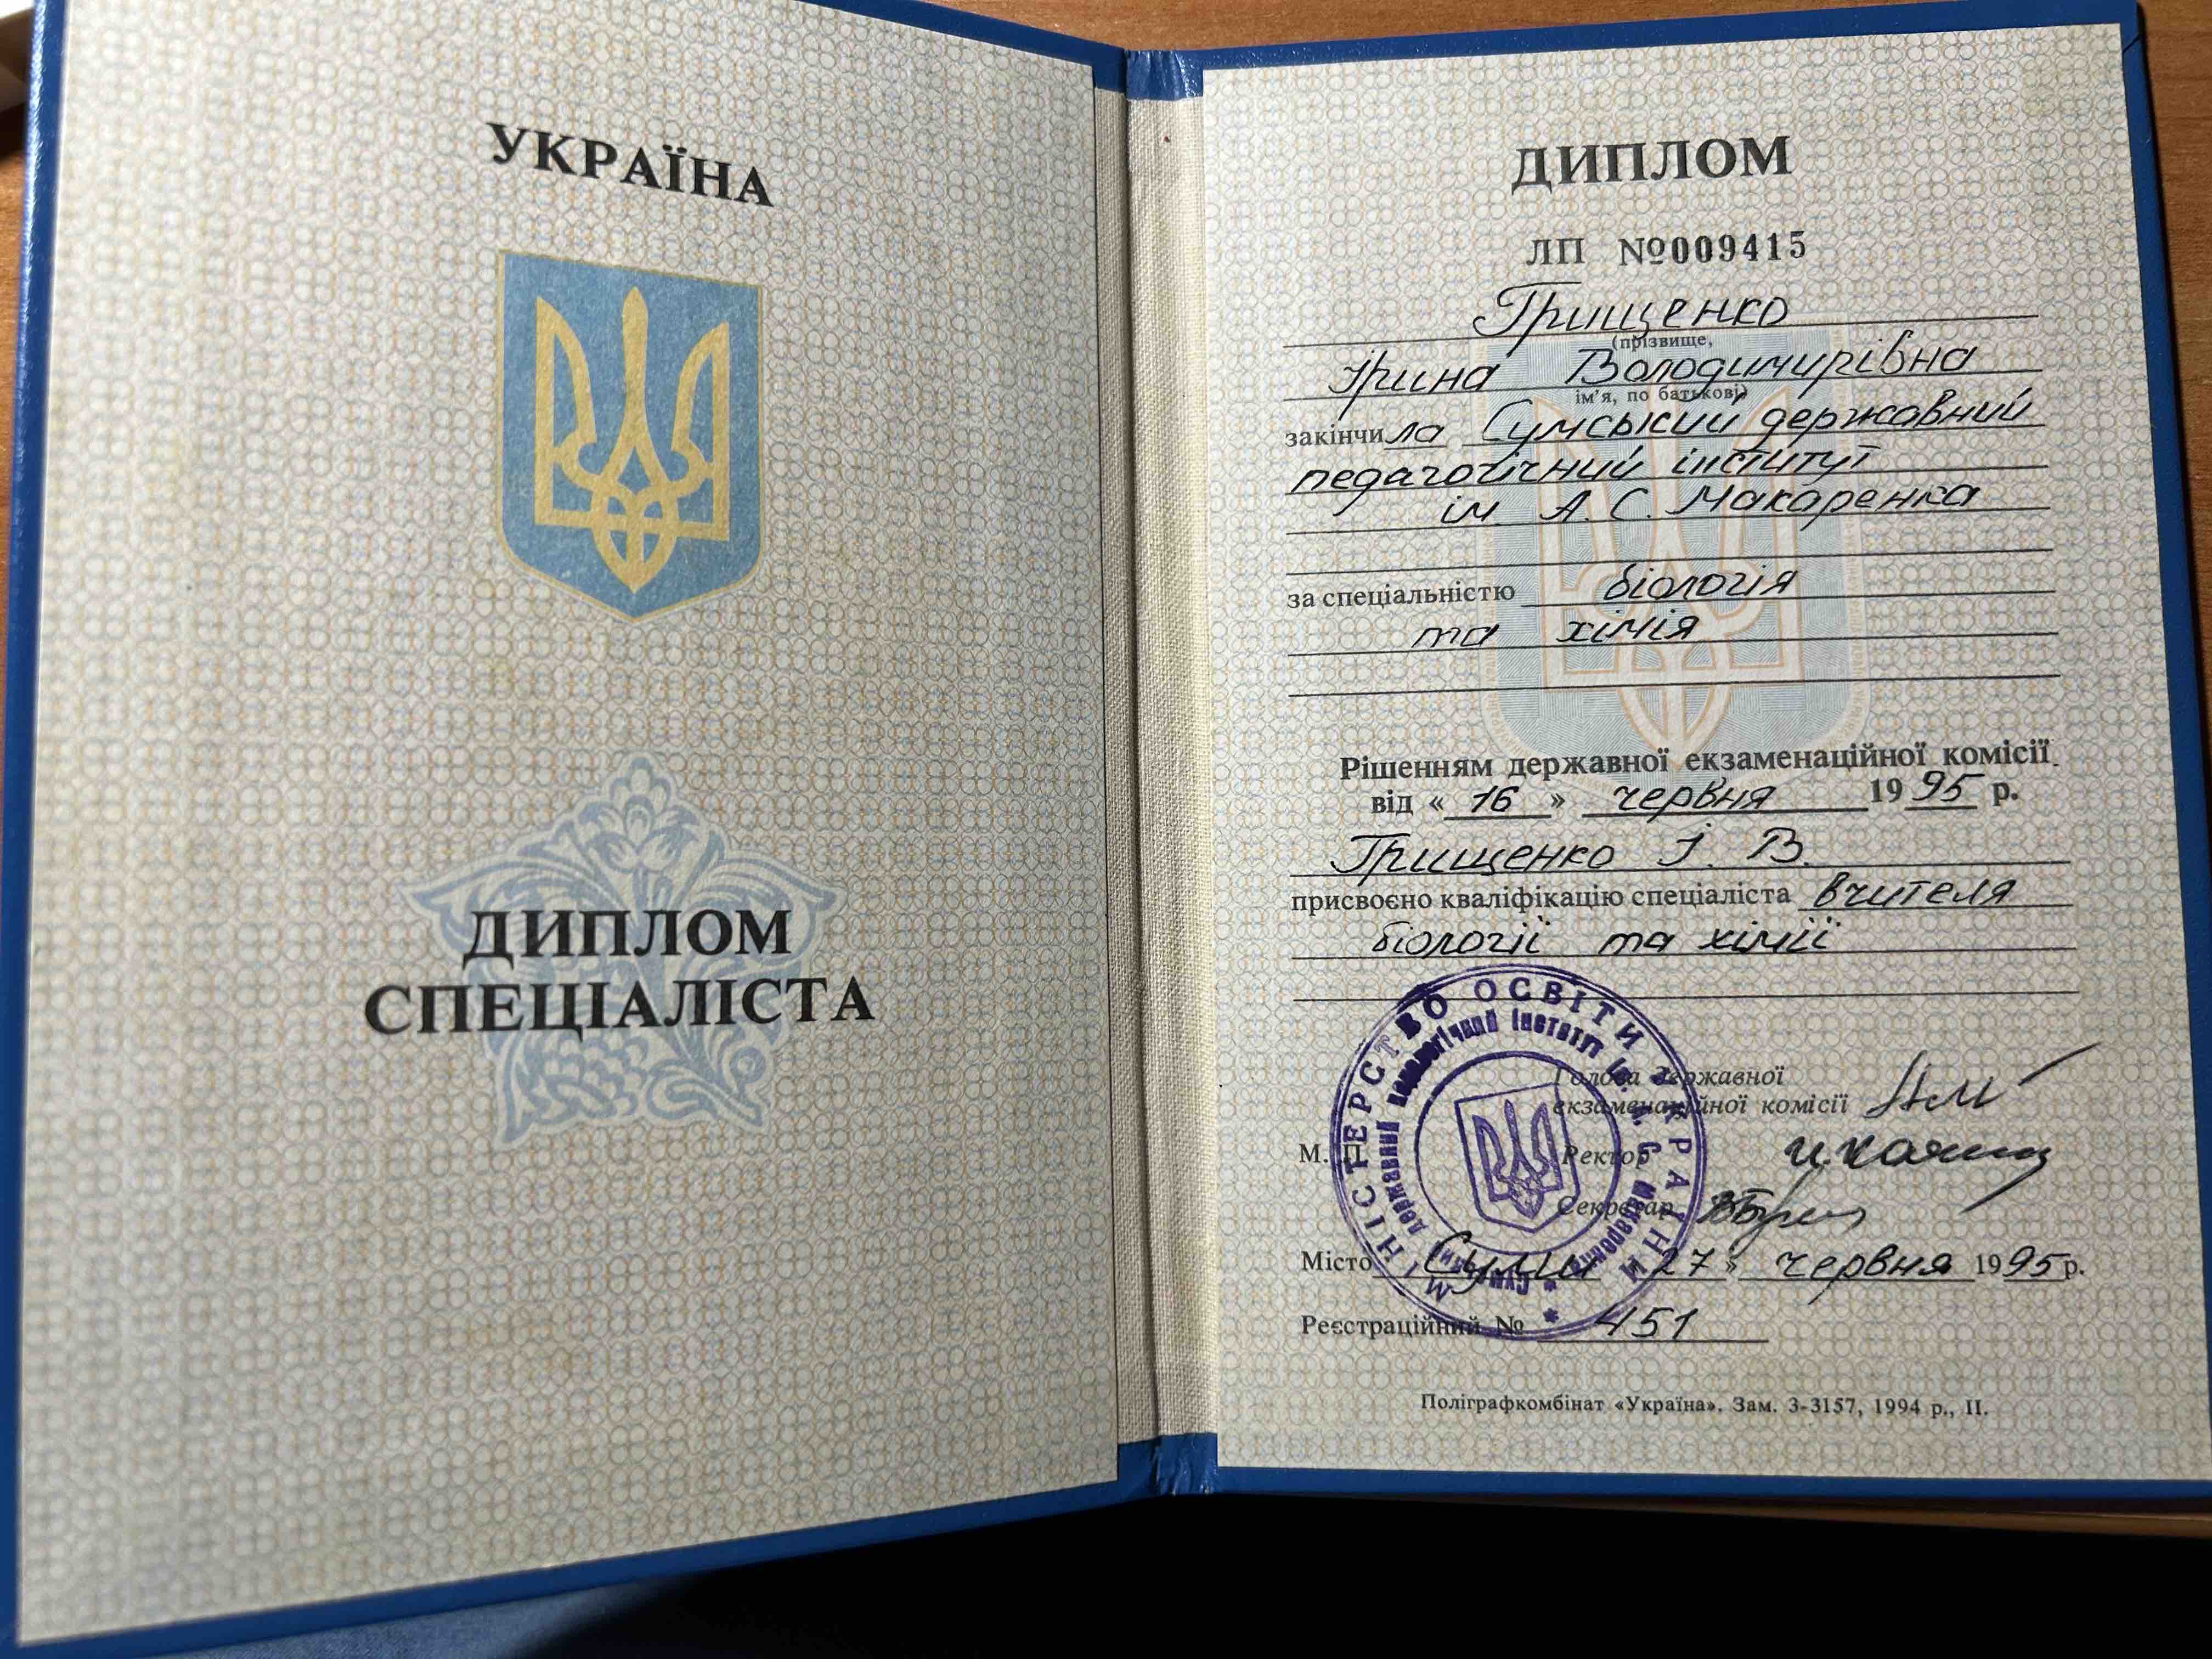 УКРАЇНА
ДИПЛОМ
СПЕЦІАЛІСТА
ДИПЛОМ
ЛП №009415
Грищенко
(прізвище,
Ірина Володимирівна
ім’я, по батькові)
закінчила Сумський державний
педагогічний інститут
ім. А. С. Макаренка
за спеціальністю біологія
та хімія
Рішенням державної екзаменаційної комісії
від « 16 » червня 1995 р.
Грищенко І. В.
присвоєно кваліфікацію спеціаліста вчителя
біології та хімії
МІНІСТЕРСТВО ОСВІТИ УКРАЇНИ
Сумський державний педагогічний інститут ім. А. С. Макаренка
Голова державної
екзаменаційної комісії
М. П.
Ректор
Секретар
Місто Суми 27 » червня 1995 р.
Реєстраційний № 451
Поліграфкомбінат «Україна». Зам. 3-3157, 1994 р., II.